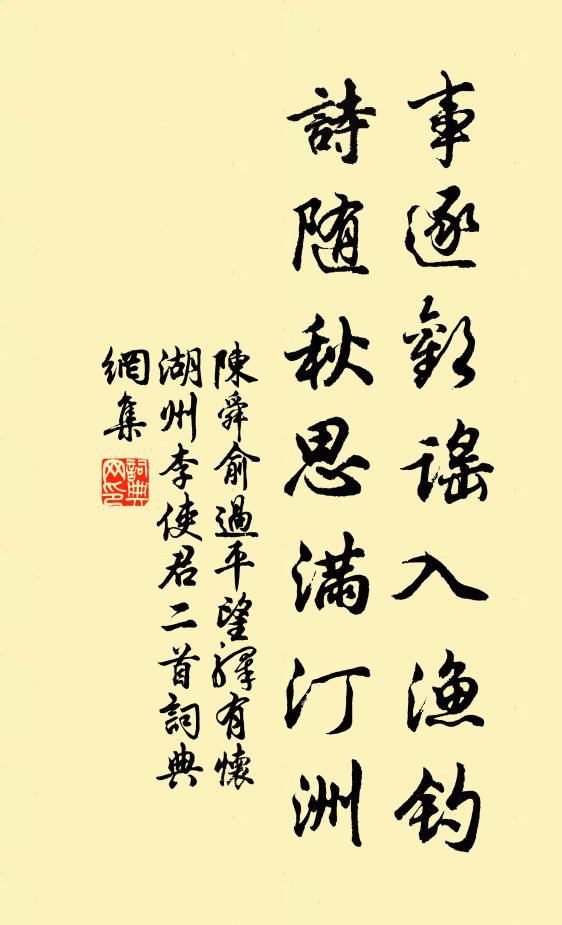 事逐歡謠入漁釣
詩随秋思滿汀洲
陳舜俞過平望驛有懷
湖州李使君二首詞典
網集
詞典
网印